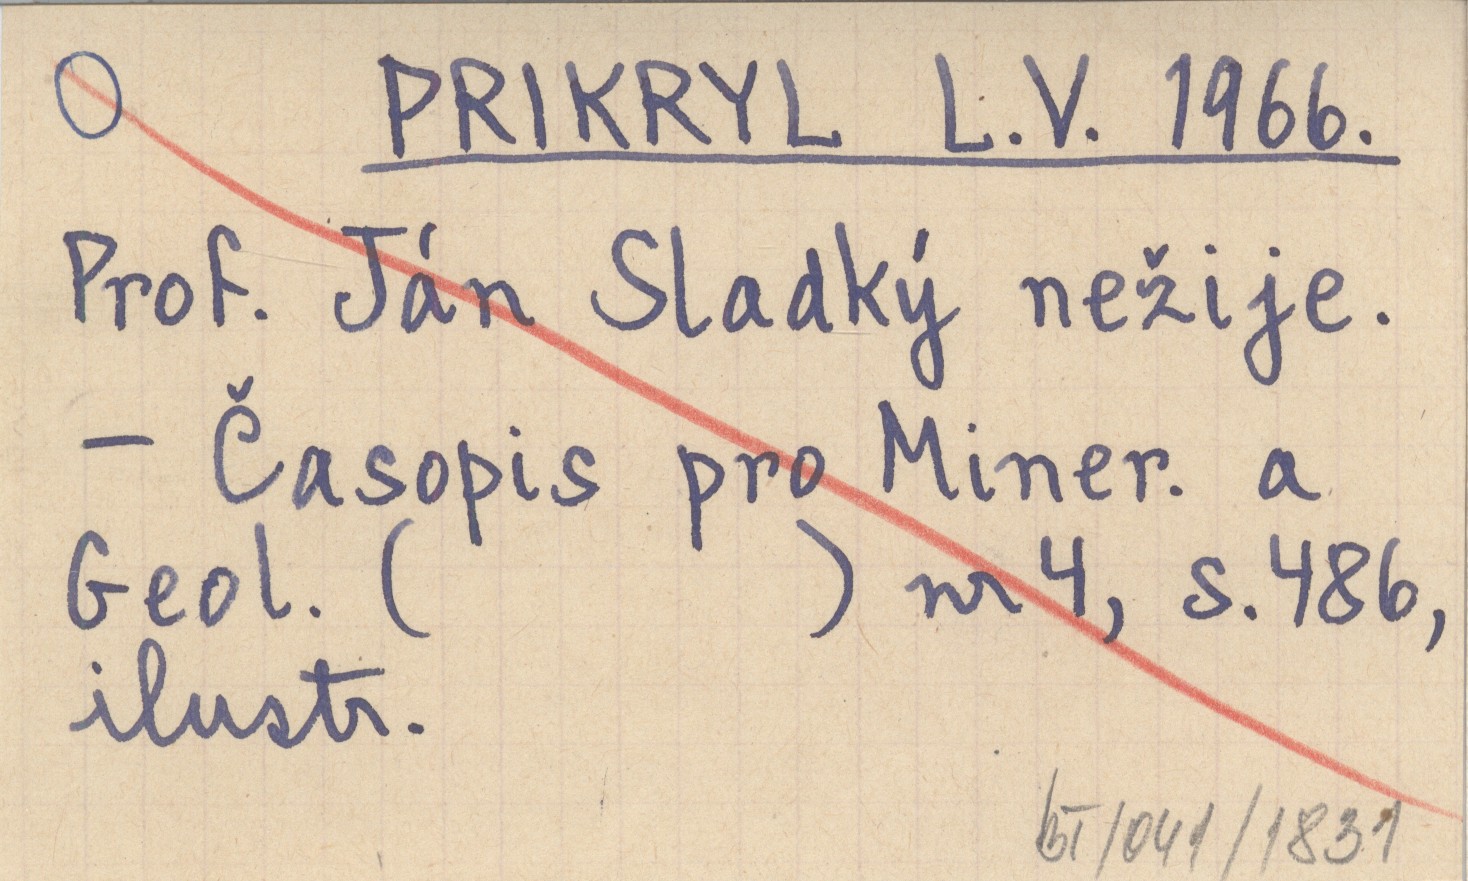 O PRIKRYL L.V. 1966.
Prof. Ján Sladký nežije.
– Časopis pro Miner. a
Geol. ( ) nr 4, s. 486,
ilustr.
/041/1831